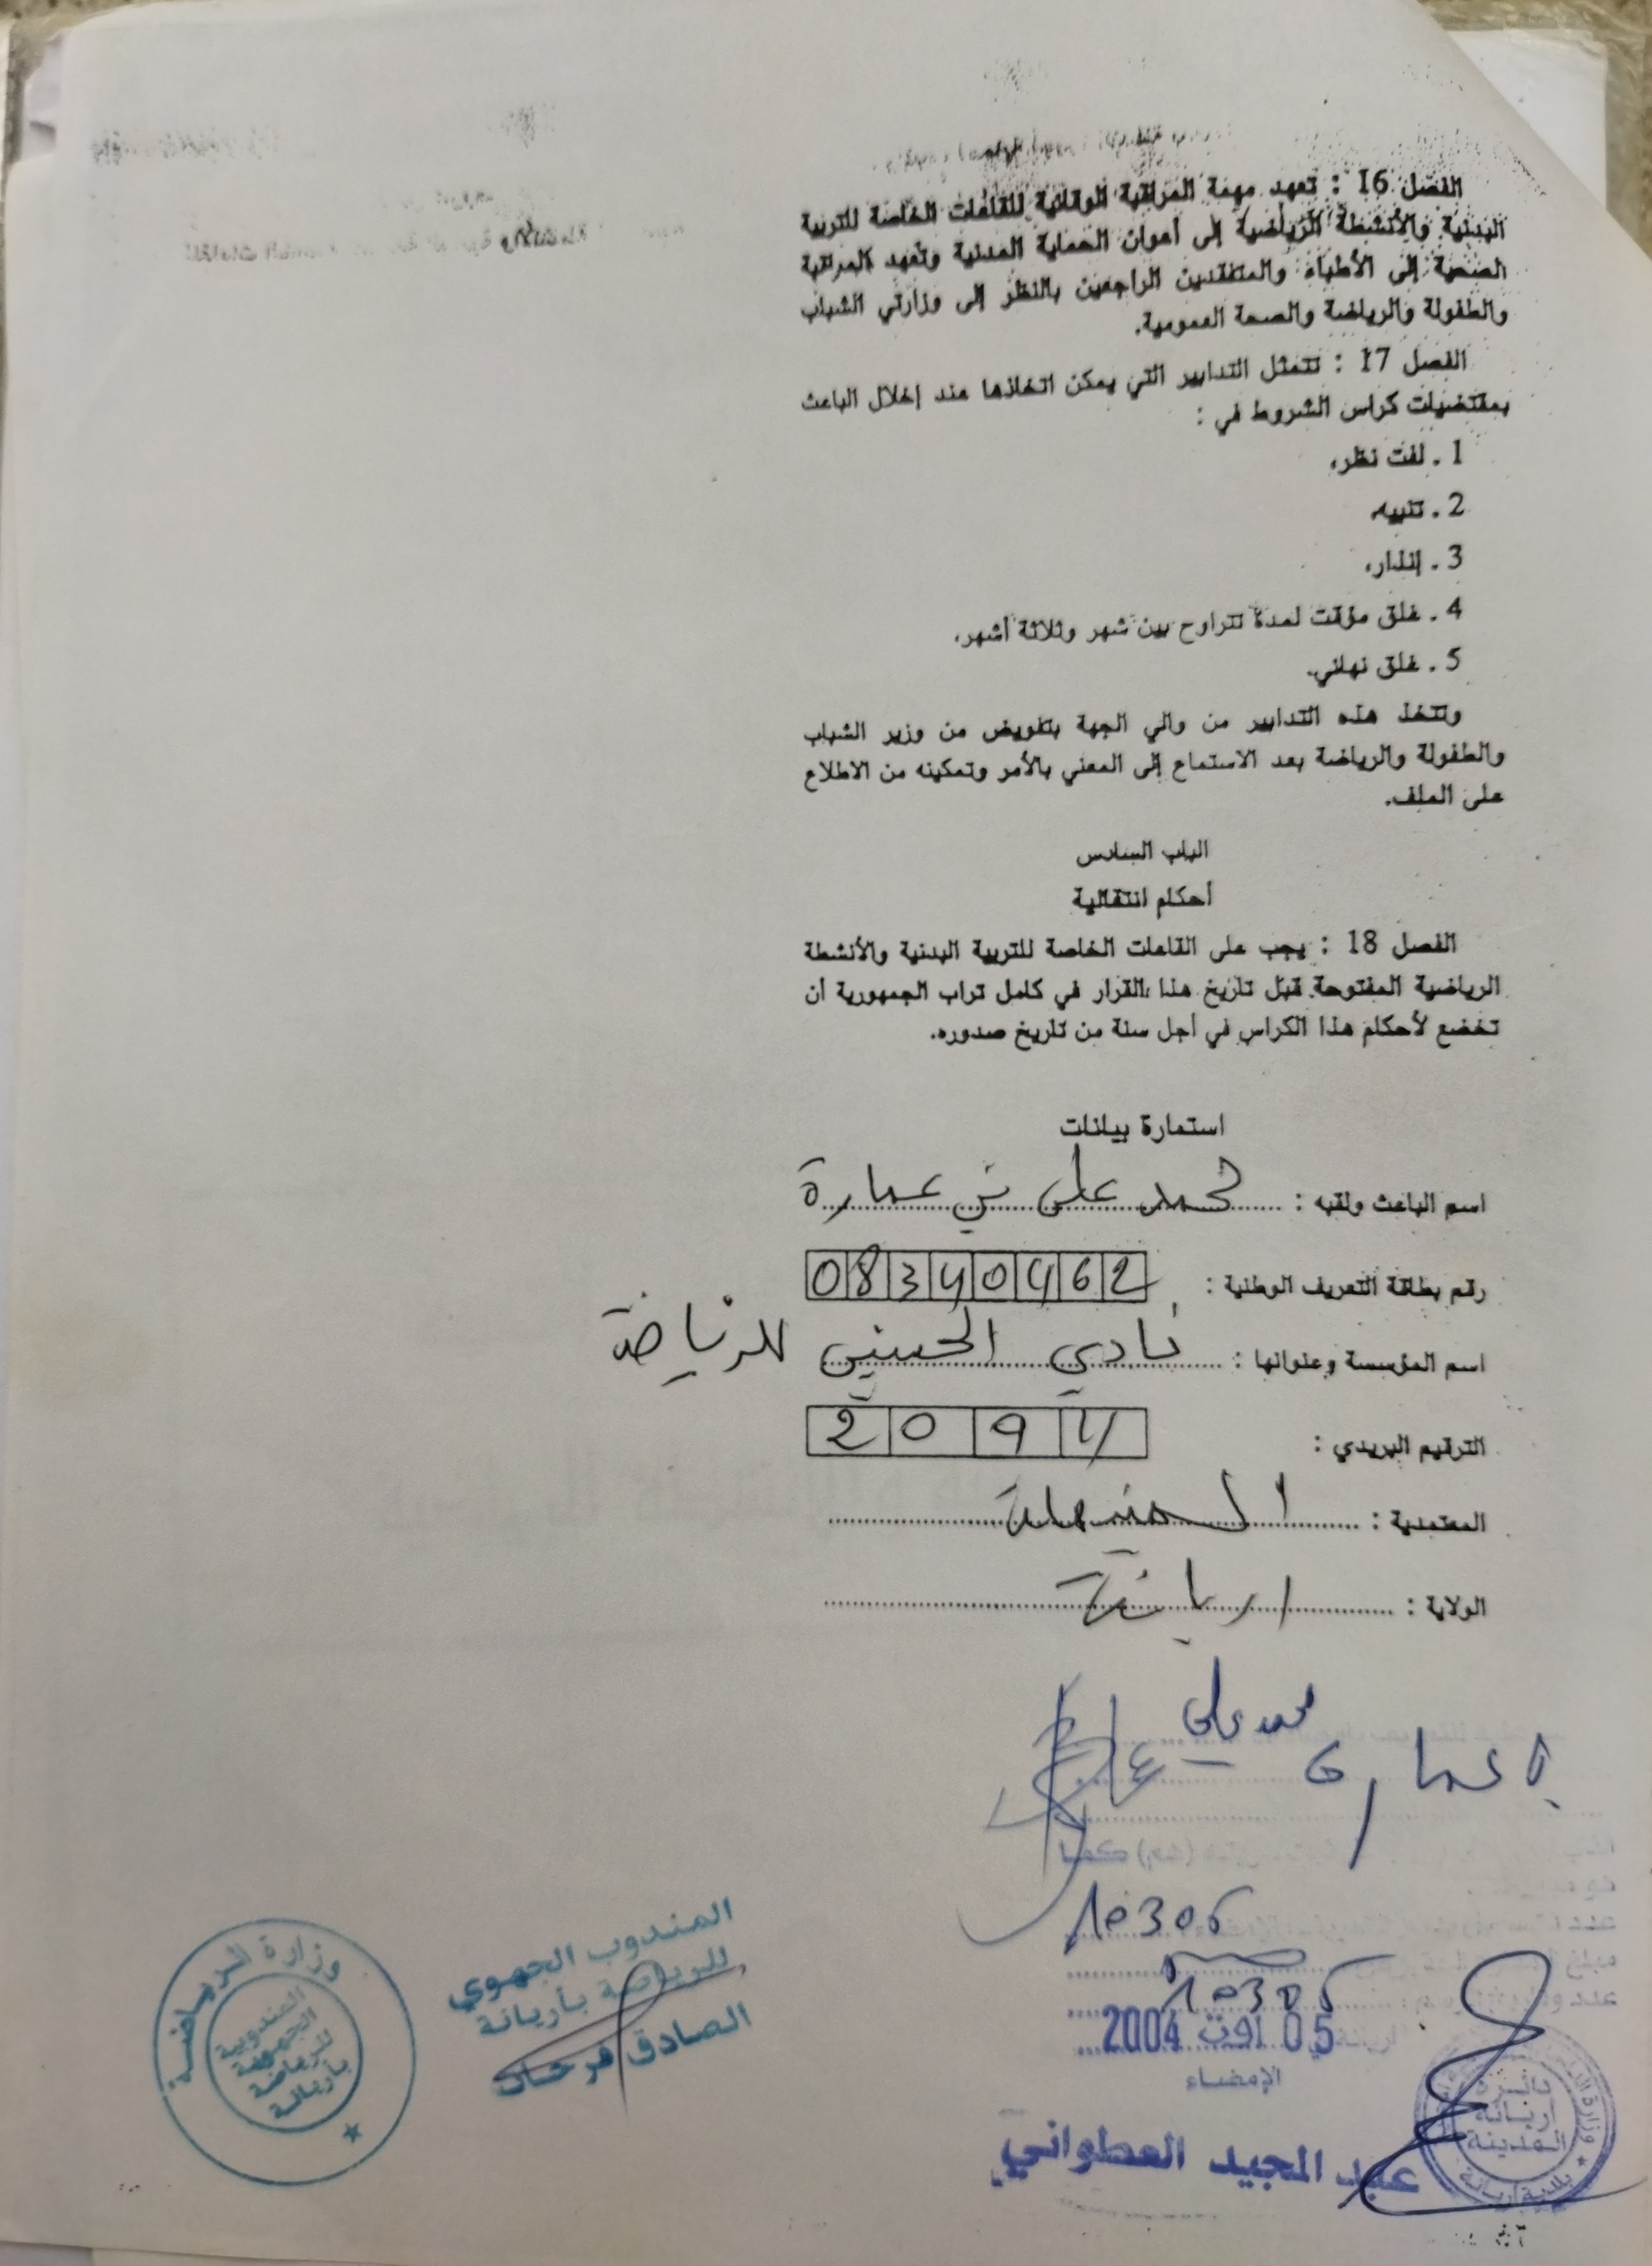 الفصل 16 : تعهد مهمة المراقبة الوقائية للقاعات الخاصة للتربية
البدنية والأنشطة الرياضية إلى أعوان الحماية المدنية وتعهد المراقبة
الصحية إلى الأطباء والمتفقدين الراجعين بالنظر إلى وزارتي الشباب
والطفولة والرياضة والصحة العمومية.
الفصل 17 : تتمثل التدابير التي يمكن اتخاذها عند إخلال الباعث
بمقتضيات كراس الشروط في :
1 . لفت نظر،
2 . تنبيه،
3 . إنذار،
4 . غلق مؤقت لمدة تتراوح بين شهر وثلاثة أشهر،
5 . غلق نهائي.
وتتخذ هذه التدابير من والي الجهة بتفويض من وزير الشباب
والطفولة والرياضة بعد الاستماع إلى المعني بالأمر وتمكينه من الاطلاع
على الملف.
الباب السادس
أحكام انتقالية
الفصل 18 : يجب على القاعات الخاصة للتربية البدنية والأنشطة
الرياضية المفتوحة قبل تاريخ هذا القرار في كامل تراب الجمهورية أن
تخضع لأحكام هذا الكراس في أجل سنة من تاريخ صدوره.
استمارة بيانات
اسم الباعث ولقبه : محمد علي بن عمارة
رقم بطاقة التعريف الوطنية : 08340462
اسم المؤسسة وعنوانها : نادي الحسيني للرياضة
الترقيم البريدي : 2094
المعتمدية : المنيهلة
الولاية : اريانة
محمد علي
بن عمارة
10306
10306
05 اوت 2004
الإمضاء
عبد المجيد العطواني
دائرة
اريانة
المدينة
بلدية اريانة
المندوب الجهوي
للرياضة بأريانة
الصادق فرحات
وزارة الرياضة
المندوبية
الجهوية
للرياضة
بأريانة